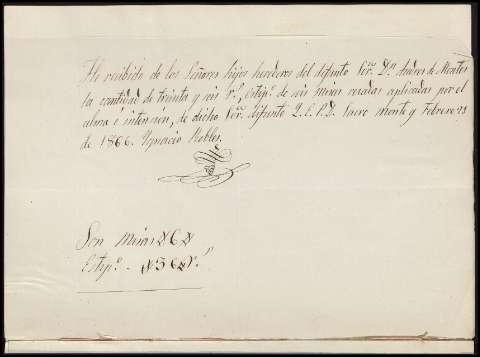 He recibido de los Señores hijos herederos del difunto Sor. Dn. Andres de Montes
la cantidad de treinta y seis rs., estipo. de seis misas rezadas aplicadas por el
alma e intencion, de dicho Sor. difunto Q.E.P.D. Sacro monte y Febrero 23
de 1866. Ygnacio Robles.
Son Misas #6#
Estipo. - #36# rs.